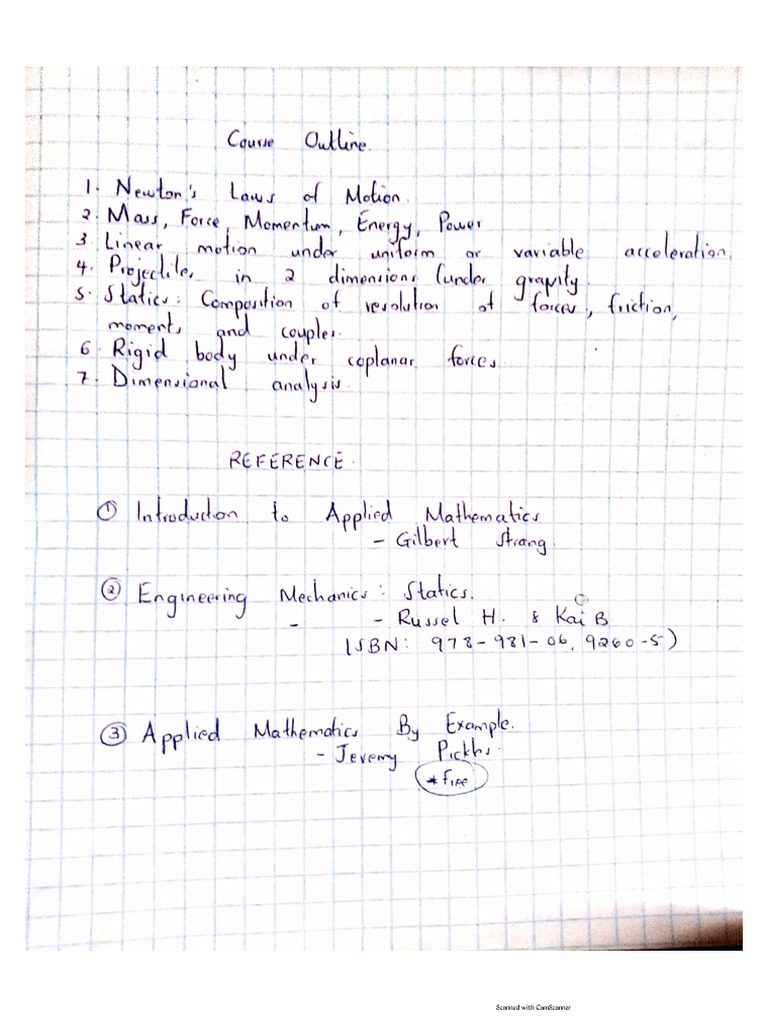 Course Outline.
1. Newton's Laws of Motion.
2. Mass, Force, Momentum, Energy, Power
3. Linear motion under uniform or variable acceleration.
4. Projectiles in 2 dimensions (under gravity.
5. Statics: Composition of resolution of forces, friction,
moments and couples.
6. Rigid body under coplanar forces.
7. Dimensional analysis.
REFERENCE.
① Introduction to Applied Mathematics
- Gilbert Strang.
② Engineering Mechanics: Statics.
- - Russel H. & Kai B
ISBN: 978-981-06, 9260-5)
③ Applied Mathematics By Example.
- Jeremy
Scanned with CamScanner